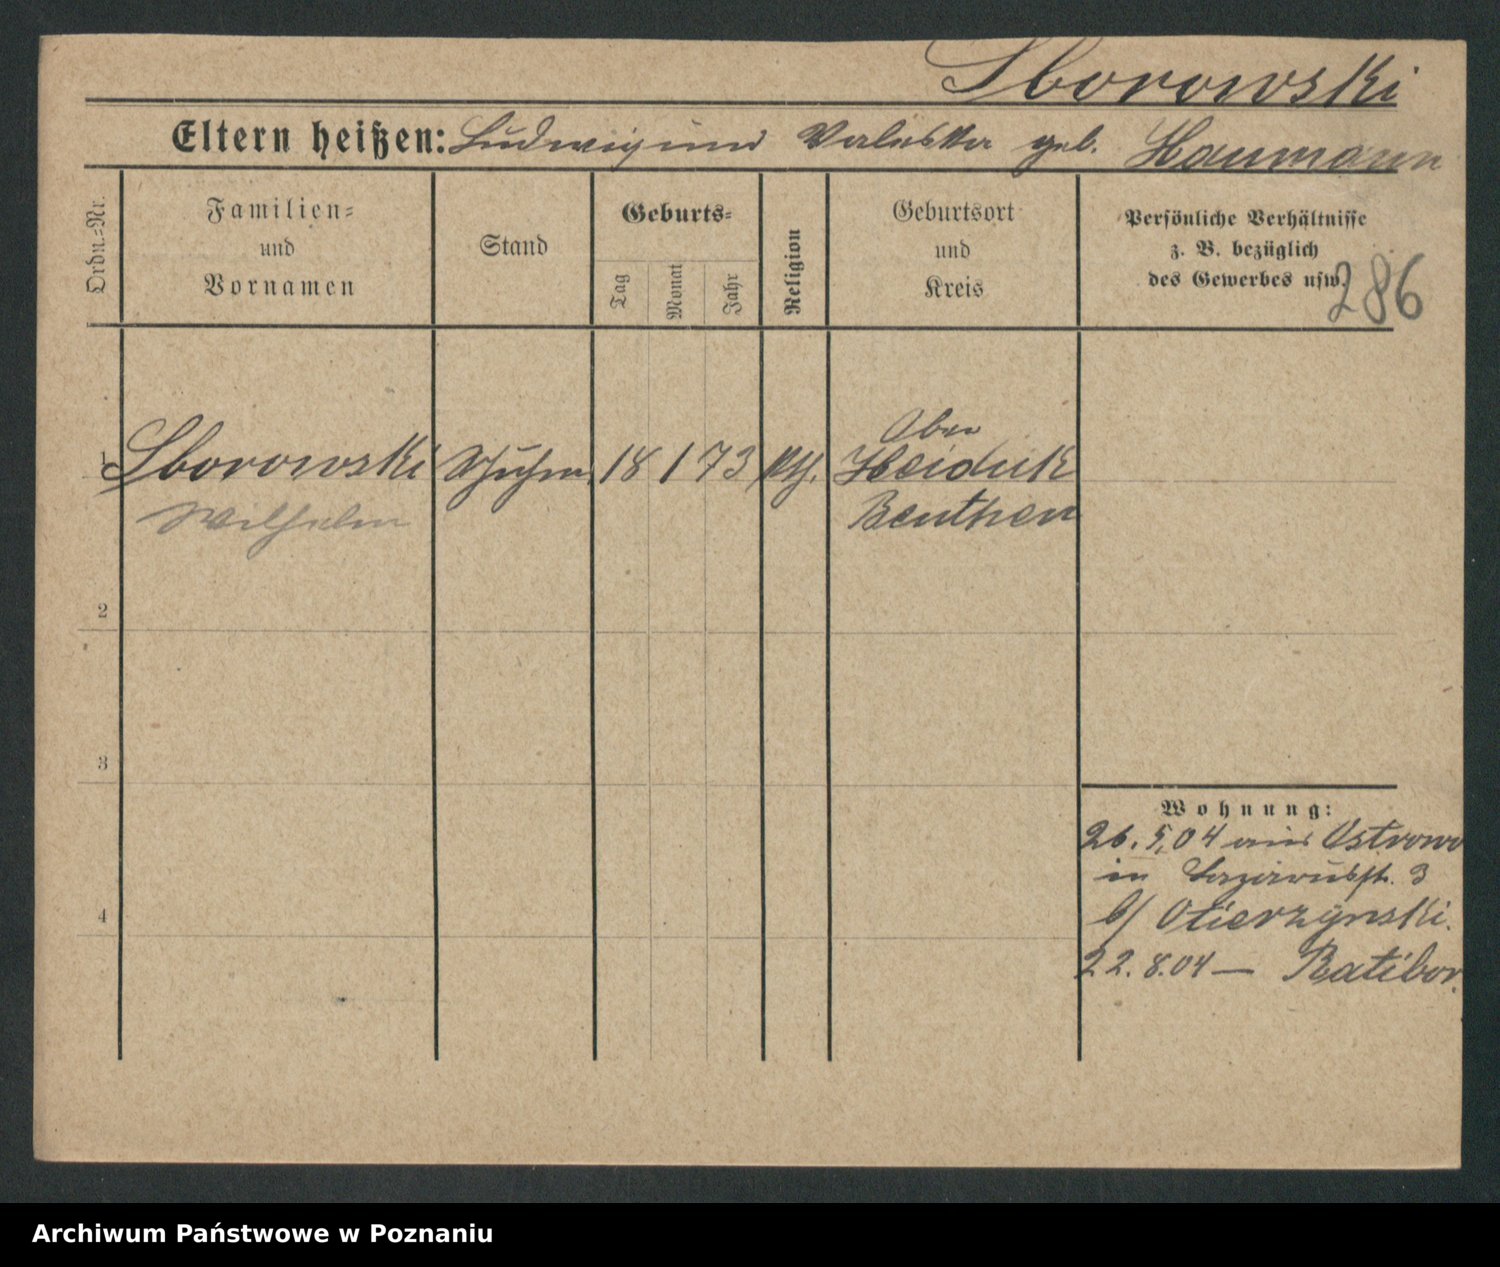 Sborowski
Eltern heißen: Ludwig und Valeska geb. Haumann
Ordn.=Nr.
Familien=
und
Vornamen
Stand
Geburts=
Tag
Monat
Jahr
Religion
Geburtsort
und
Kreis
Persönliche Verhältnisse
z. B. bezüglich
des Gewerbes usw.
286
Ober
1 Sborowski Schuhm. 18 1 73 kth. Heiduk
Wilhelm Beuthen
2
3
4
Wohnung:
26. 5. 04 aus Ostrowo
in Lazarusstr. 3
b/
22. 8. 04 — Ratibor.
Archiwum Państwowe w Poznaniu